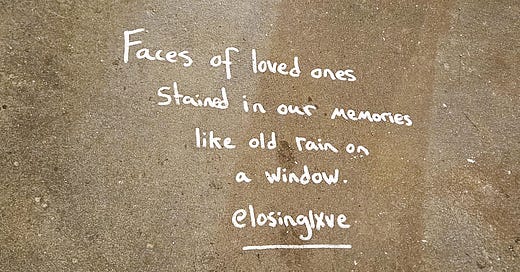 Faces of loved ones
Stained in our memories
like old rain on
a window.
@losinglxve